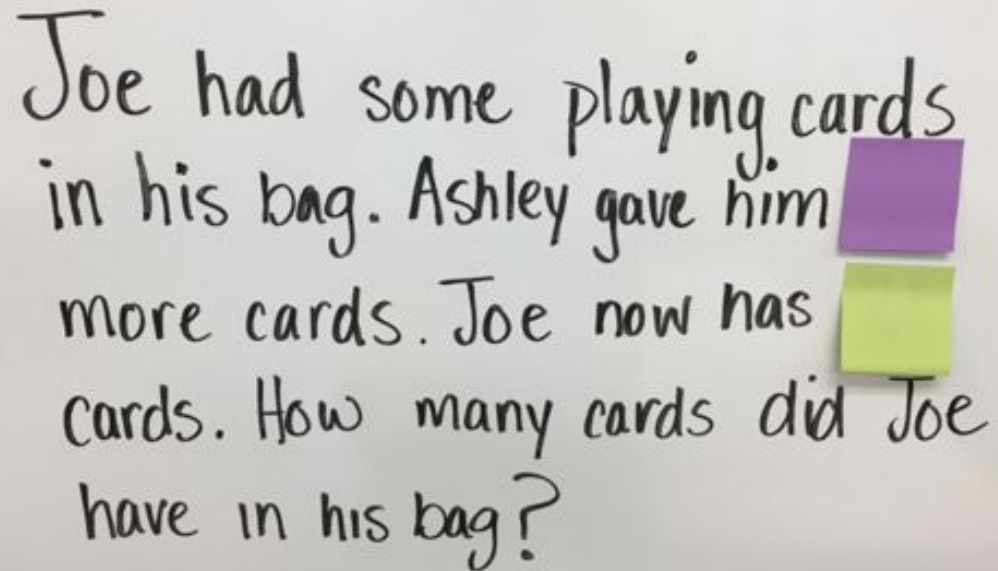 Joe had some playing cards
in his bag. Ashley gave him
more cards. Joe now has
cards. How many cards did Joe
have in his bag?